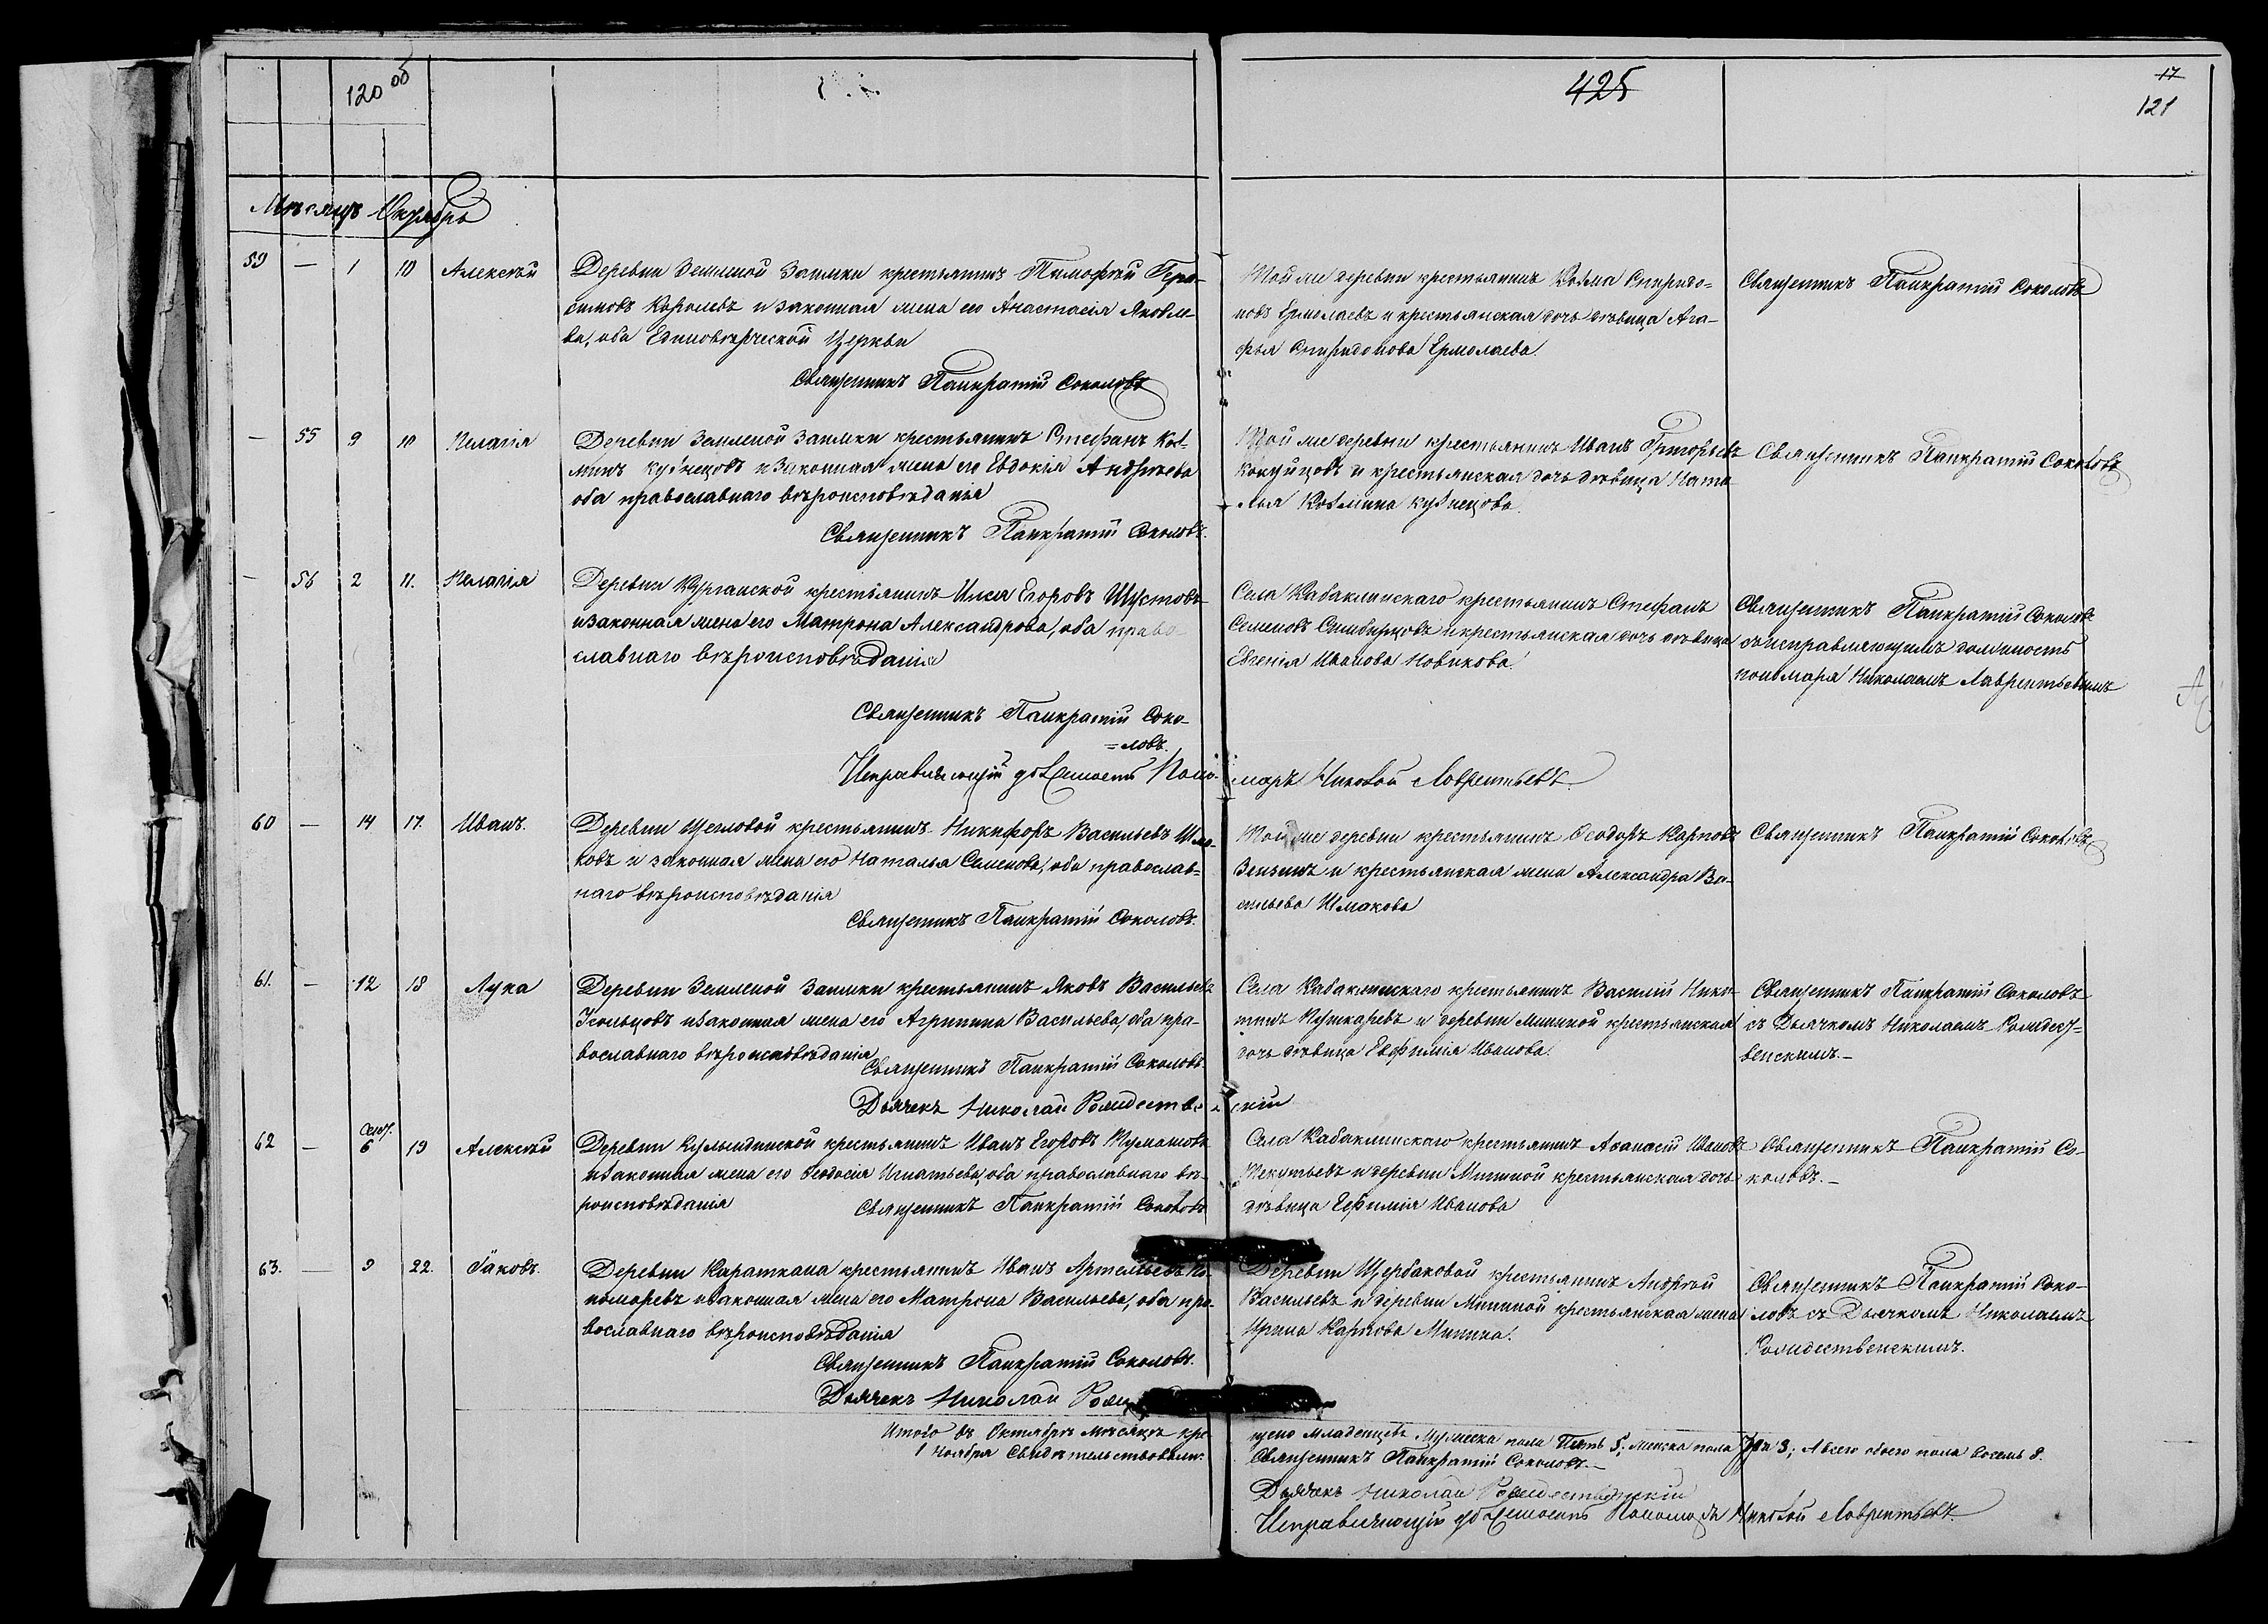 120 об
425
17
121
Мѣсяцъ Октябрь
59 — 1 10 Алексѣй
Деревни Земленой Заимки крестьянинъ Тимофѣй Гера-
симовъ Королевъ и законная жена его Анастасія Яковле-
ва, оба Единовѣрческой Церкви
Священникъ Панкратій Соколовъ
Той же деревни крестьянинъ Козма Спиридо-
новъ Ермолаевъ и крестьянская дочь дѣвица Ага-
фья Спиридонова Ермолаева.
Священникъ Панкратій Соколовъ
— 55 9 10 Пелагія
Деревни Земленой Заимки крестьянинъ Стефанъ Коз-
минъ Кузнецовъ и законная жена его Евдокія Андреева
оба православнаго вѣроисповѣданія
Священникъ Панкратій Соколовъ.
Той же деревни крестьянинъ Иванъ Григорьевъ
и крестьянская дочь дѣвица Ната-
лья Козмина Кузнецова.
Священникъ Панкратій Соколовъ
— 56 2 11. Пелагія
Деревни Курганской крестьянинъ Илья Егоровъ Шустовъ
и законная жена его Матрона Александрова, оба право-
славнаго вѣроисповѣданія
Священникъ Панкратій Соко-
=ловъ.
Села Кабаклинскаго крестьянинъ Стефанъ
Семеновъ Сишбирцовъ и крестьянская дочь дѣвица
Евгенія Иванова Новикова.
Священникъ Панкратій Соколовъ
съ исправляющимъ должность
пономаря Николаемъ Лаврентьевымъ
Исправляющій должность Пономаръ Николай Лаврентьевъ.
60 — 14 17. Иванъ.
Деревни Щегловой крестьянинъ Никифоръ Васильевъ Шма-
ковъ и законная жена его Наталья Семенова, оба православ-
наго вѣроисповѣданія
Священникъ Панкратій Соколовъ.
Той же деревни крестьянинъ Ѳеодоръ Карповъ
Зензинъ и крестьянская жена Александра Ва-
сильева Шмакова
Священникъ Панкратій Соколовъ
61. — 12 18 Лука
Деревни Земленой Заимки крестьянинъ Яковъ Васильевъ
Усольцовъ и законная жена его Агрипина Васильева, оба пра-
вославнаго вѣроисповѣданія
Священникъ Панкратій Соколовъ.
Дьячекъ Николай Рождественскій
Села Кабаклинскаго крестьянинъ Василій Ники-
тинъ Пушкаревъ и деревни Мининой крестьянская
дочь дѣвица Евфимія Иванова.
Священникъ Панкратій Соколовъ
съ Дьячкомъ Николаемъ Рождест-
венскимъ.—
62 — Сент. 6 19 Алексѣй
Деревни Кулындинской крестьянинъ Иванъ Егоровъ
и законная жена его Ѳеодосія Игнатьева, оба православнаго вѣ-
роисповѣданія
Священникъ Панкратій Соколовъ
Села Кабаклинскаго крестьянинъ Аѳанасій Ивановъ
и деревни Мининой крестьянская дочь
дѣвица Ефимія Иванова
Священникъ Панкратій Со-
коловъ.—
63. — 9 22. Іаковъ.
Деревни Караткана крестьянинъ Иванъ Артемьевъ По-
номоревъ и законная жена его Матрона Васильева, оба пра-
вославнаго вѣроисповѣданія
Священникъ Панкратій Соколовъ.
Дьячекъ Николай Рож
Деревни Щербаковой крестьянинъ Андрей
Васильевъ и деревни Мининой крестьянская жена
Ирина Карпова Минина.
Священникъ Панкратій Соко-
ловъ съ Дьячкомъ Николаемъ
Рождественскимъ.
Итого въ Октябрѣ мѣсяцѣ крещено Младенцевъ Мужеска пола Пять 5; женска пола Три 3; А всего обоего пола восемь 8.
1 Ноября Свидѣтельствовали: Священникъ Панкратій Соколовъ.—
Дьячекъ Николай Рождественскій
Исправляющій должность Пономаря Николай Лаврентьевъ.